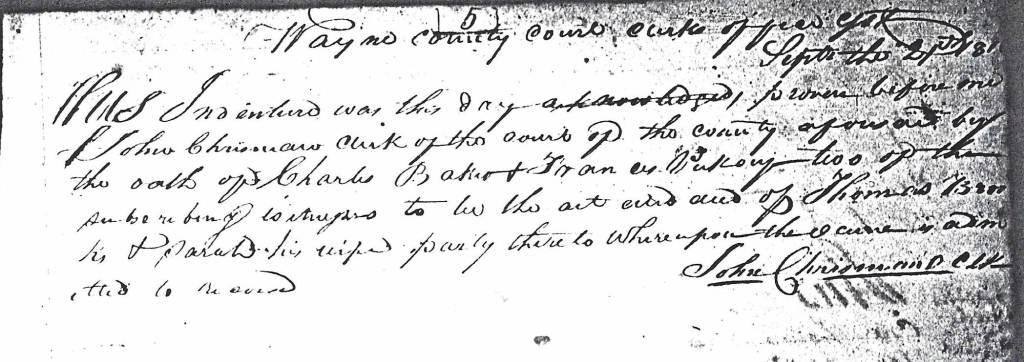 5
Wayne county court clerks office
Sept the 21st 181
This Indenture was this day acknowledged, proven before me
John Chrisman clerk of the court of the county aforesaid by
the oath of Charles Baker & Frances two of the
subscribing witnesses to be the act and deed of Thomas
& Sarah his wife party thereto whereupon the same is adm
itted to record
John Chrisman clk